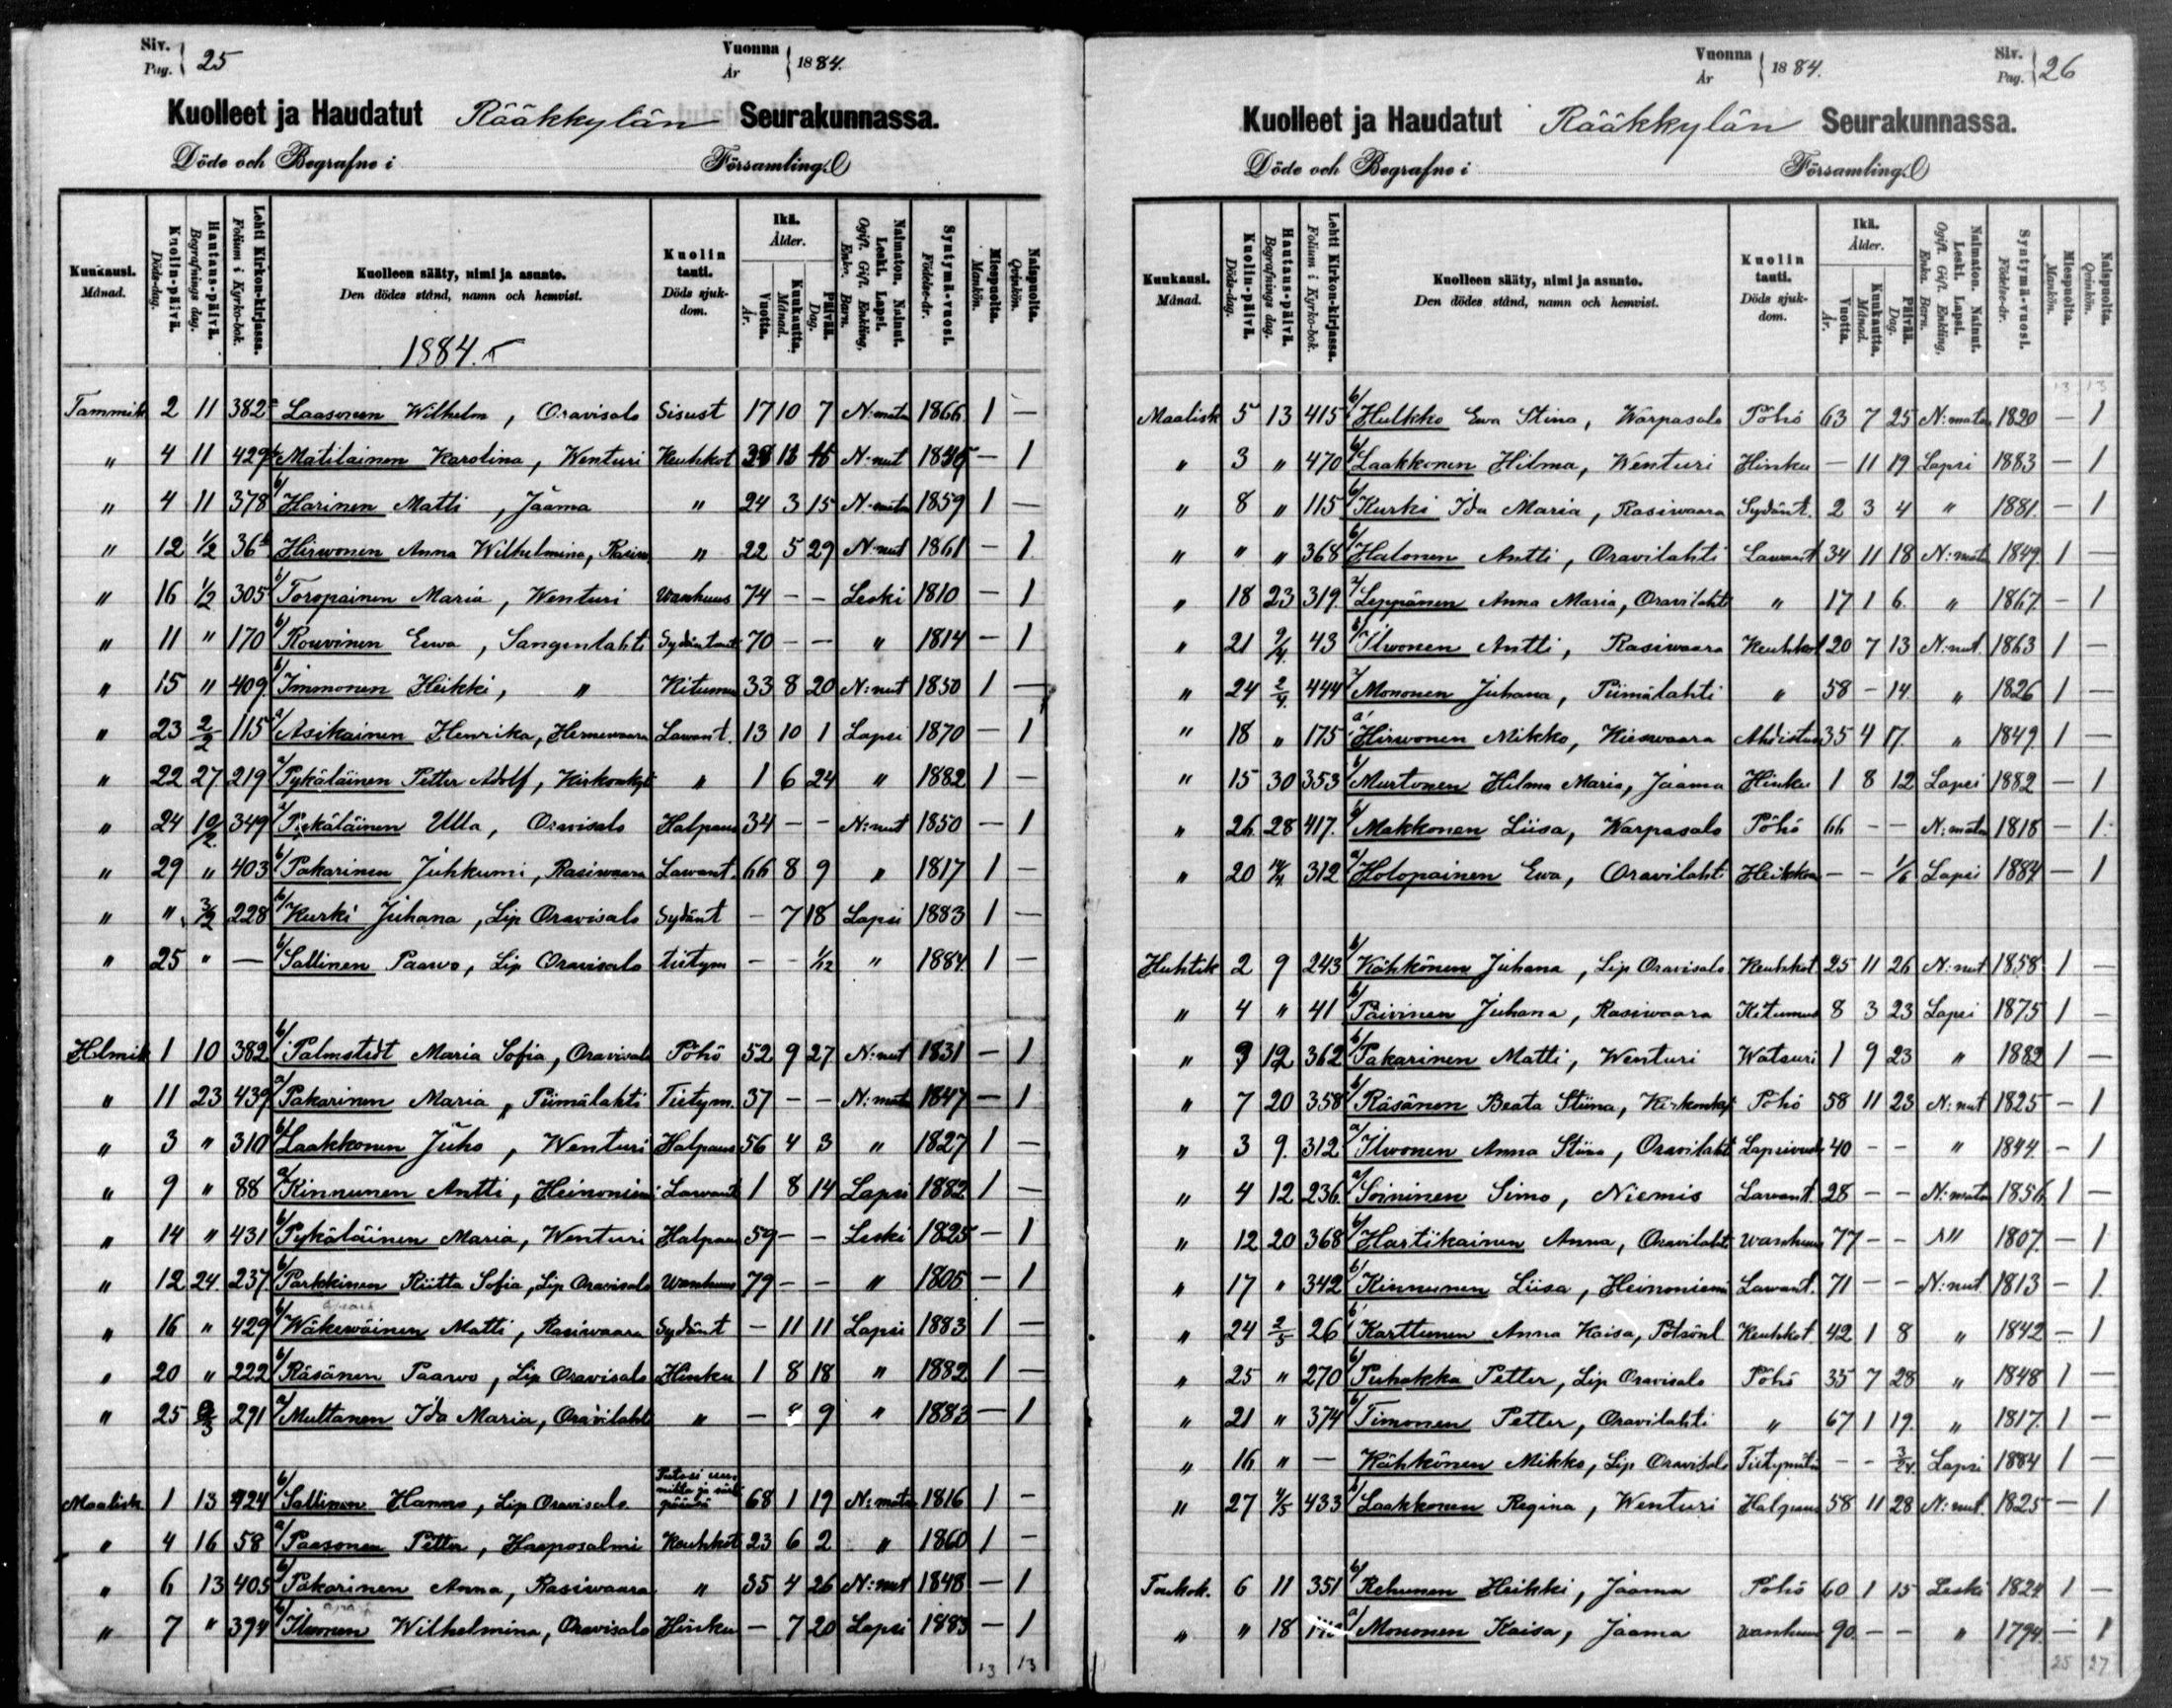 Siv. Pag. 25 Vuonna År 1884.
Kuolleet ja Haudatut Rääkkylän Seurakunnassa.
Döde och Begrafne i Församling.
Kuukausi. Månad. Kuolin-päivä. Döds-dag. Hautaus-päivä. Begrafnings dag. Lehti Kirkon-kirjassa. Folium i Kyrko-bok. Kuolleen sääty, nimi ja asunto. Den dödes stånd, namn och hemvist. Kuolin tauti. Döds sjuk-dom. Ikä. Ålder. Vuotta. År. Kuukautta. Månad. Päivää. Dag. Naimaton. Nainut. Leski. Lapsi. Ogift. Gift. Enkling, Enka. Barn. Syntymä-vuosi. Födelse-år. Miespuolta. Mankön. Naispuolta. Qvinkön.
1884.
Tammik 2 11 382 Laasonen Wilhelm, Oravisalo Sisust 17 10 7 N:mätön 1866 1 —
" 4 11 429 Matilainen Karolina, Wenturi Keuhkot N:nut — 1
" 4 11 378 b/ Harinen Matti, Jaama " 24 3 15 1859 1 —
" 12 1/2 36 Hirwonen Anna Wilhelmina, Rasiw " 22 5 29 N:nut 1861 — 1
" 16 1/2 305 b/ Toropainen Maria, Wenturi Wanhuus 74 — — Leski 1810 — 1
" 11 " 170 b/ Rouvinen Eewa, Sangenlahti 70 — — " 1814 — 1
" 15 " 409 b/ Immonen Heikki, " Kitumus 33 8 20 N:nut 1850 1 —
" 23 2/2 115 a/ Asikainen Henrika, Hernewaara Lawant. 13 10 1 Lapsi 1870 — 1
" 22 27 219 a/ Pykäläinen Petter Adolf, Kirkonkyl " 1 6 24 " 1882 1 —
" 24 10/2 349 a/ Pykäläinen Ulla, Oravisalo Halpaus 34 — — N:nut 1850 — 1
" 29 " 403 b/ Pakarinen Juhkumi, Rasiwaara Lawant. 66 8 9 " 1817 1 —
" " 3/2 228 a/ Kurki Juhana, Lip Oravisalo Sydänt — 7 18 Lapsi 1883 1 —
" 25 " — b/ Sallinen Paavo, Lip Oravisalo tietym — — 1/12 " 1884 1 —
Helmik 1 10 382 b/ Palmstedt Maria Sofia, Oravisalo Pöhö 52 9 27 N:nut 1831 — 1
" 11 23 439 a/ Pakarinen Maria, Piimälahti Tietym. 37 — — N:mätö 1847 — 1
" 3 " 310 b/ Laakkonen Juho, Wenturi Halpaus 56 4 3 " 1827 1 —
" 9 " 88 a/ Kinnunen Antti, Heinoniemi Lawant 1 8 14 Lapsi 1882 1 —
" 14 " 431 b/ Pykäläinen Maria, Wenturi Halpaus 59 — — Leski 1825 — 1
" 12 24 237 b/ Parkkinen Riitta Sofia, Lip Oravisalo Wanhuus 79 — — " 1805 — 1
" 16 " 429 b/ Wäkewäinen Matti, Rasiwaara Sydänt — 11 11 Lapsi 1883 1 —
" 20 " 222 b/ Räsänen Paavo, Lip Oravisalo Hinku 1 8 18 " 1882 1 —
" 25 291 a/ Multanen Ida Maria, Oravilahti " — 8 9 " 1883 — 1
Maalisk 1 13 424 b/ Sallinen Hannes, Lip Oravisalo 68 1 19 N:mätö 1816 1 —
" 4 16 58 a/ Paasonen Petter, Haaposalmi Keuhkot 23 6 2 " 1860 1 —
" 6 13 405 b/ Pakarinen Anna, Rasiwaara " 35 4 26 N:nut 1848 — 1
" 7 " 394 b/ Ilwonen Wilhelmina, Oravisalo Hinku — 7 20 Lapsi 1883 — 1
13 13
Vuonna År 1884. Siv. Pag. 26
Kuolleet ja Haudatut Rääkkylän Seurakunnassa.
Döde och Begrafne i Församling.
Kuukausi. Månad. Kuolin-päivä. Döds-dag. Hautaus-päivä. Begrafnings dag. Lehti Kirkon-kirjassa. Folium i Kyrko-bok. Kuolleen sääty, nimi ja asunto. Den dödes stånd, namn och hemvist. Kuolin tauti. Döds sjuk-dom. Ikä. Ålder. Vuotta. År. Kuukautta. Månad. Päivää. Dag. Naimaton. Nainut. Leski. Lapsi. Ogift. Gift. Enkling, Enka. Barn. Syntymä-vuosi. Födelse-år. Miespuolta. Mankön. Naispuolta. Qvinkön.
13 13
Maalisk 5 13 415 b/ Hulkko Ewa Stina, Warpasalo Pöhö 63 7 25 N:mätön 1820 — 1
" 3 " 470 b/ Laakkonen Hilma, Wenturi Hinku — 11 19 Lapsi 1883 — 1
" 8 " 115 b/ Kurki Ida Maria, Rasiwaara Sydänt. 2 3 4 " 1881 — 1
" " " 368 b/ Halonen Antti, Oravilahti Lawant 34 11 18 N:mätö 1849 1 —
" 18 23 319 a/ Leppänen Anna Maria, Oravilahti " 17 1 6 " 1867 — 1
" 21 2/4 43 b/ Ilwonen Antti, Rasiwaara Keuhkot 20 7 13 N:nut 1863 1 —
" 24 2/4 444 a/ Mononen Juhana, Piimälahti " 58 — 14 " 1826 1 —
" 18 " 175 a/ Hirwonen Mikko, Kieswaara Ahdistus 35 4 17 " 1849 1 —
" 15 30 353 b/ Murtonen Hilma Maria, Jaama Hinku 1 8 12 Lapsi 1882 — 1
" 26 28 417 b/ Makkonen Liisa, Warpasalo Pöhö 66 — — N:mätö 1818 — 1
" 20 14/4 312 a/ Holopainen Ewa, Oravilahti Heikkou — — 1/6 Lapsi 1884 — 1
Huhtik 2 9 243 b/ Kähkönen Juhana, Lip Oravisalo Keuhkot 25 11 26 N:nut 1858 1 —
" 4 " 41 b/ Päivinen Juhana, Rasiwaara Kitumus 8 3 23 Lapsi 1875 1 —
" 9 12 362 b/ Pakarinen Matti, Wenturi Watsuri 1 9 23 " 1882 1 —
" 7 20 358 b/ Räsänen Beata Stiina, Kirkonkyl Pöhö 58 11 23 N:nut 1825 — 1
" 3 9 312 a/ Ilwonen Anna Stiina, Oravilaht Lapsivuod 40 — — " 1844 — 1
" 4 12 236 a/ Soininen Simo, Niemis Lawant. 28 — — N:mätö 1856 1 —
" 12 20 368 b/ Hartikainen Anna, Oravilaht wanhuus 77 — — 1807 — 1
" 17 " 342 b/ Kinnunen Liisa, Heinoniemi Lawant. 71 — — N:nut 1813 — 1
" 24 2/5 26 b/ Karttunen Anna Kaisa, Pötsönl Keuhkot. 42 1 8 " 1842 — 1
" 25 " 270 b/ Puhakka Petter, Lip Oravisalo Pöhö 35 7 28 " 1848 1 —
" 21 " 374 b/ Timonen Petter, Oravilahti " 67 1 19 " 1817 1 —
" 16 " — Kähkönen Mikko, Lip Oravisalo Tietymätö — — 3/24 Lapsi 1884 1 —
" 27 4/5 433 b/ Laakkonen Regina, Wenturi Halpaus 58 11 28 N:nut 1825 — 1
Toukok. 6 11 351 b/ Rehunen Heikki, Jaama Pöhö 60 1 15 Leski 1824 1 —
" " 18 a/ Mononen Kaisa, Jaama wanhuus 90 — — " 1794 — 1
25 27